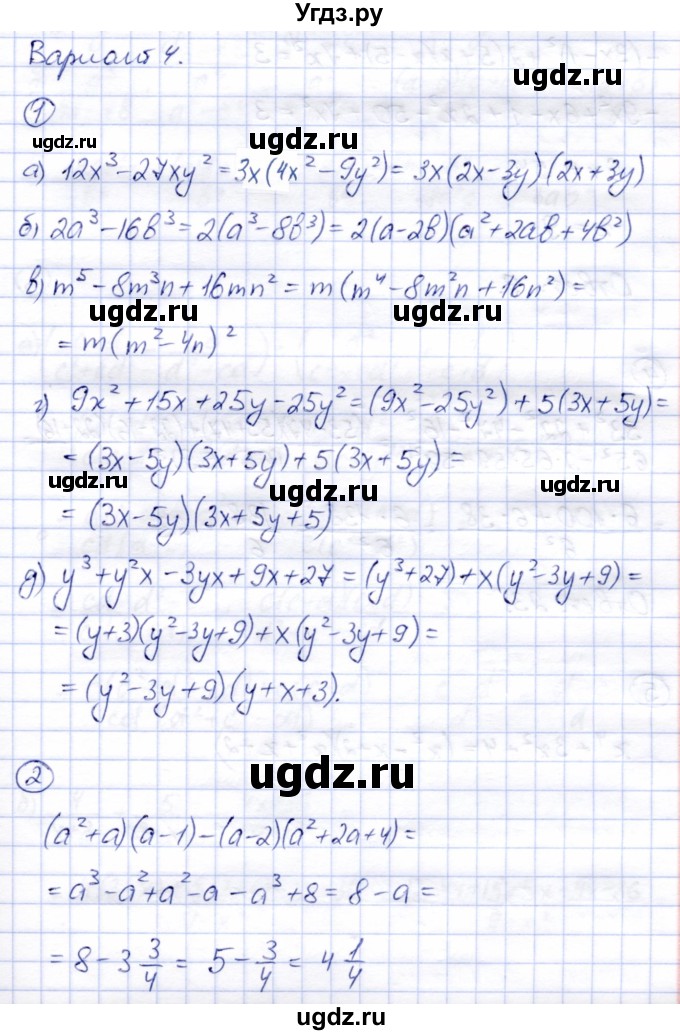 Угдз.ру
Вариант 4.
ugdz.ru
1
ugdz.ru
ugdz.ru
а) 12x³ − 27xy² = 3x(4x² − 9y²) = 3x(2x−3y)(2x+3y)
ugdz.ru
б) 2a³ − 16b³ = 2(a³ − 8b³) = 2(a−2b)(a² + 2ab + 4b²)
в) m⁵ − 8m³n + 16mn² = m(m⁴ − 8m²n + 16n²) =
ugdz.ru
= m(m² − 4n)²
ugdz.ru
г) 9x² + 15x + 25y − 25y² = (9x² − 25y²) + 5(3x + 5y) =
ugdz.ru
= (3x−5y)(3x+5y) + 5(3x+5y) =
ugdz.ru
ugdz.ru
ugdz.ru
= (3x−5y)(3x+5y+5)
д) y³ + y²x − 3yx + 9x + 27 = (y³+27) + x(y² − 3y + 9) =
ugdz.ru
= (y+3)(y² − 3y + 9) + x(y² − 3y + 9) =
ugdz.ru
= (y² − 3y + 9)(y + x + 3).
2
ugdz.ru
ugdz.ru
(a² + a)(a−1) − (a−2)(a² + 2a + 4) =
ugdz.ru
= a³ − a² + a² − a − a³ + 8 = 8 − a =
ugdz.ru
= 8 − 3 3/4 = 5 − 3/4 = 4 1/4
ugdz.ru
ugdz.ru